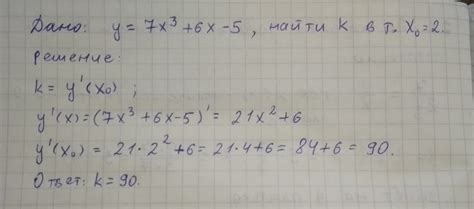 Дано: y = 7x³+6x-5, найти k в т. x₀=2.
Решение:
k = y'(x₀) ;
y'(x)=(7x³+6x-5)' = 21x²+6
y'(x₀) = 21·2²+6= 21·4+6= 84+6= 90.
Ответ: k=90.